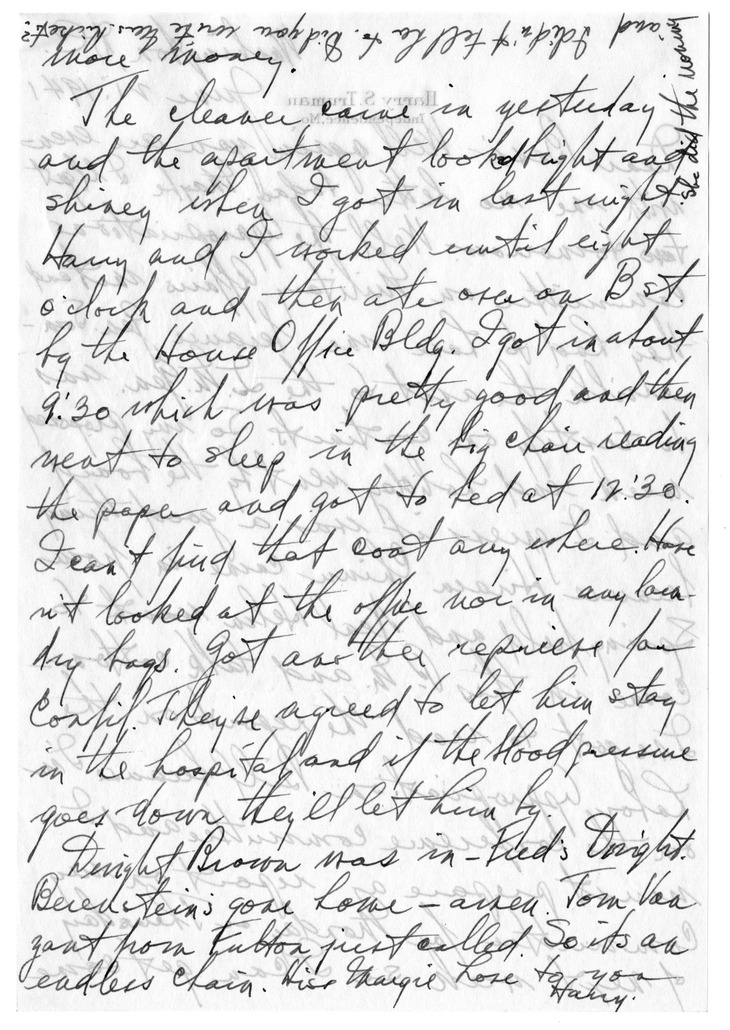 more money.
The cleaner came in yesterday
and the apartment looked bright and
shiney when I got in last night.
Harry and I worked until eight
o'clock and then ate over on B st.
by the House Office Bldg. I got in about
9:30 which was pretty good and then
went to sleep in the big chair reading
the paper and got to bed at 12:30.
I can't find that coat any where. Have
n't looked at the office nor in any laun-
dry bags. Got another reprieve for
They've agreed to let him stay
in the hospital and if the blood pressure
goes down they'll let him by.
Dwight Brown was in - Fred's Dwight.
Berenstein's gone home - amen. Tom Van
zant from Fulton just called. So its an
endless chain. Kiss Margie love to you
Harry.
she did the worry
and I didn't tell her to. Did you write Mrs. Ricketts?
Harry S. Truman
Independence, Mo.